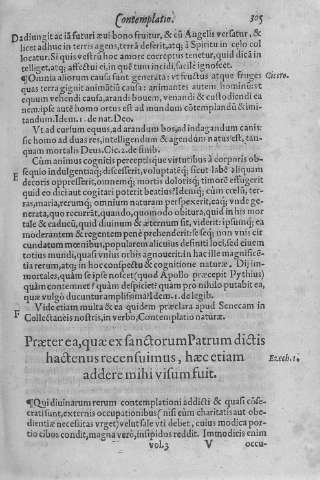 Contemplatio. 305
Dadiungit ac iā futuri æui bono fruitur, & cū Angelis versatur, &
licet adhuc in terris agens, terrā deserit, atq; ā Spiritu in celo col
locatur. Si quis vestrū hoc amore correptus tenetur, quid dicā in
telliget, atq; affectui ei, in quē tum incidi, facile ignoscet.
¶Omnia aliorum causa sunt generata: vt fructus atque fruges Cicero.
quas terra gignit animātiū causa: animantes autem hominū: vt
equum vehendi causa, arandi bouem, venandi & custodiendi ca
nem. ipse autē homo ortus est ad mundum cōtemplandū & imi-
tandum. Idem. 1. de nat. Deo.
Vt ad cursum equus, ad arandum bos, ad indagandum canis:
sic homo ad duas res, intelligendum & agendum natus est, tan-
quam mortalis Deus. Cic. 2. de finib.
E
Cùm animus cognitis perceptisque virtutibus à corporis ob-
sequio indulgentiaq; discesserit, voluptatēq; sicut labē aliquam
decoris oppresserit, omnemq; mortis dolorisq; timorē effugerit
quid eo dici aut cogitari poterit beatius? Idemq; cùm cœlū, ter-
ras, maria, rerumq; omnium naturam perspexerit, eaq; vnde ge-
nerata, quo recurrāt, quando, quo modo obitura, quid in his mor
tale & caducū, quid diuinum & æternum sit, viderit: ipsumq; ea
moderantem & regentem penè prehenderit: seseq; non vnis cir
cundatum mœnibus, popularem alicuius definiti loci, sed ciuem
totius mundi, quasi vnius orbis agnouerit: in hac ille magnificē-
tia rerum, atq; in hoc conspectu & cognitione naturæ. Dij im-
mortales, quàm se ipse noscet (quod Apollo præcepit Pythius)
quàm contemnet? quàm despiciet? quàm pro nihilo putabit ea,
quæ vulgò ducuntur amplissima? Idem. 1. de legib.
F
Vide etiam multa & ea quidem præclara apud Senecam in
Collectaneis nostris, in verbo, Contemplatio naturæ.
Præter ea, quæ ex sanctorum Patrum dictis
hactenus recensuimus, hæc etiam Ezech. 1.
addere mihi visum fuit.
¶Qui diuinarum rerum contemplationi addicti & quasi cōse-
crati sunt, externis occupationibus (nisi eùm charitatis aut obe-
dientiæ necessitas vrget) velut sale vti debet, cuius modica por-
tio cibos condit, magna verò, insipidos reddit. Immodicis enim
vol. 3 V occu-